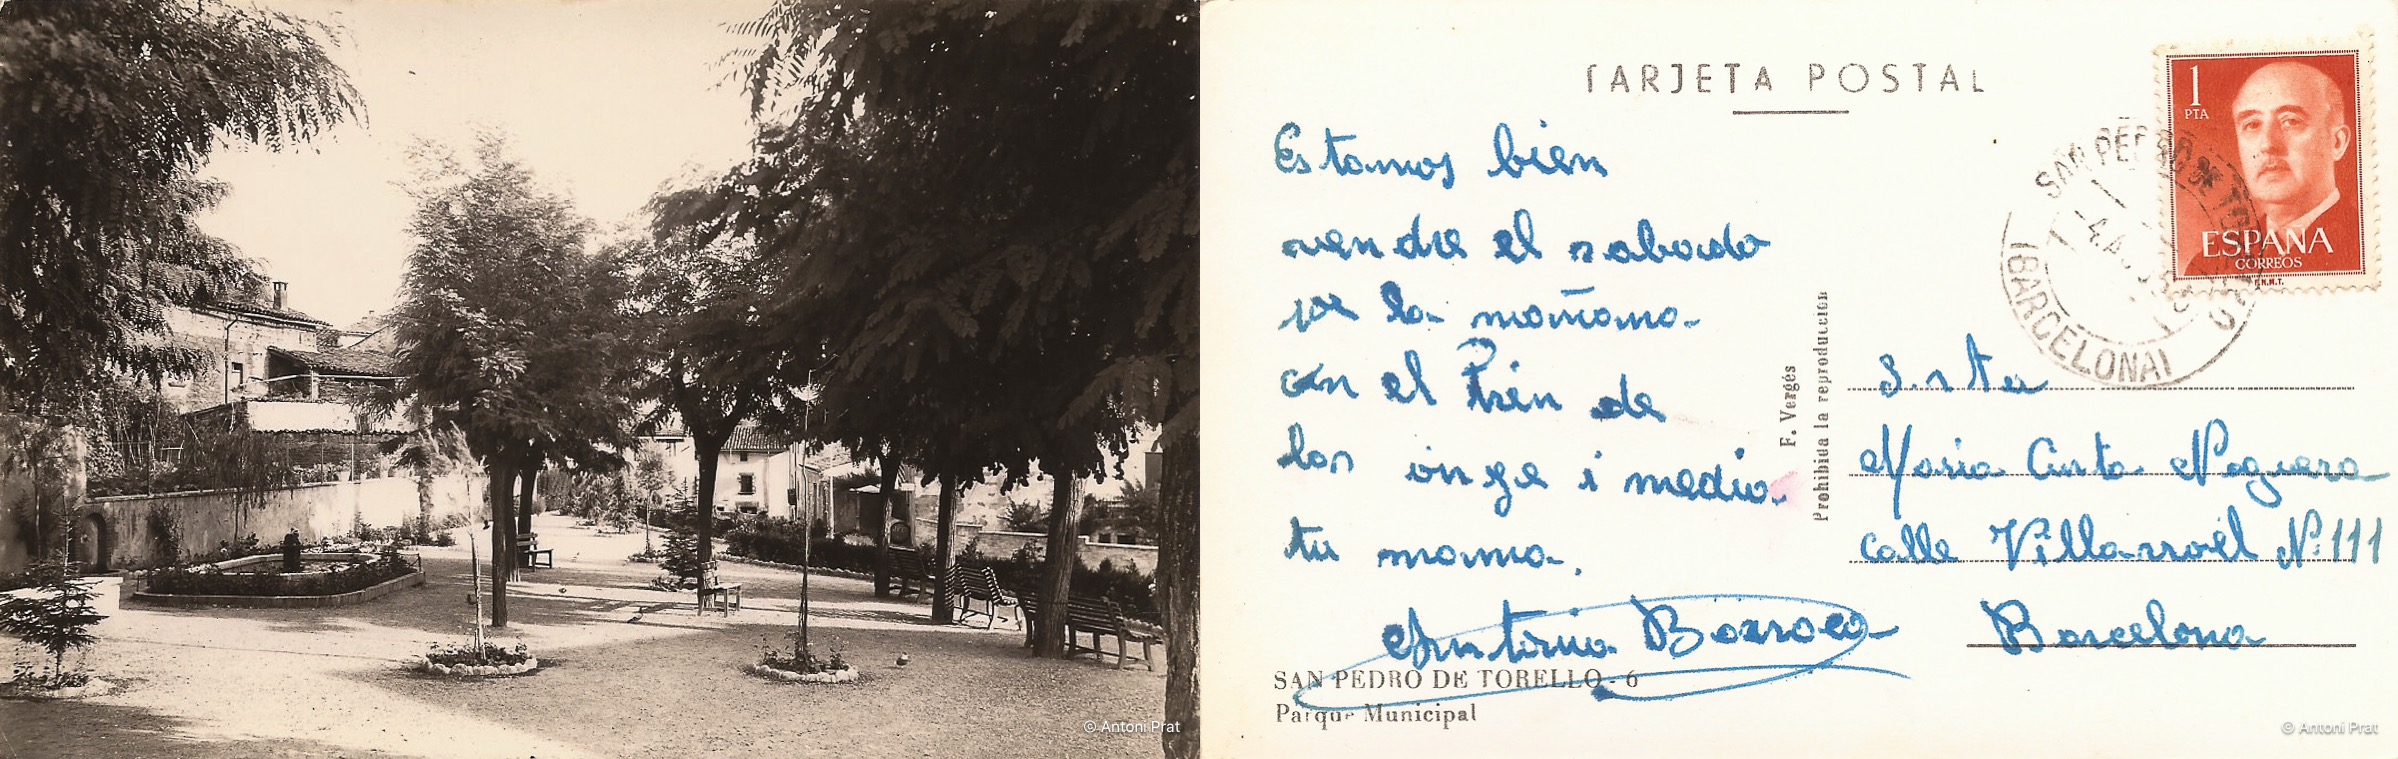 © Antoni Prat
TARJETA POSTAL
Estamos bien
vendre el sabado
pe la mañama
con el trén de
las onze i media
tu mama.
Antonia Borroca
SAN PEDRO DE TORELLO - 6
Parque Municipal
F. Vergés
Prohibida la reproducción
1
PTA
ESPAÑA
CORREOS
F.N.M.T.
SAN PEDRO DE
(BARCELONA)
Srta
Maria Curta Noguera
calle Villarroél Nº 111
Barcelona
© Antoni Prat